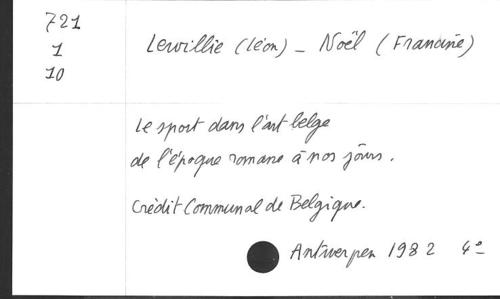 721
1
10
Lewillie (Léon) - Noël (Francine)
Le sport dans l'art belge
de l'époque romane à nos jours.
Crédit Communal de Belgique.
Antwerpen 1982 4°